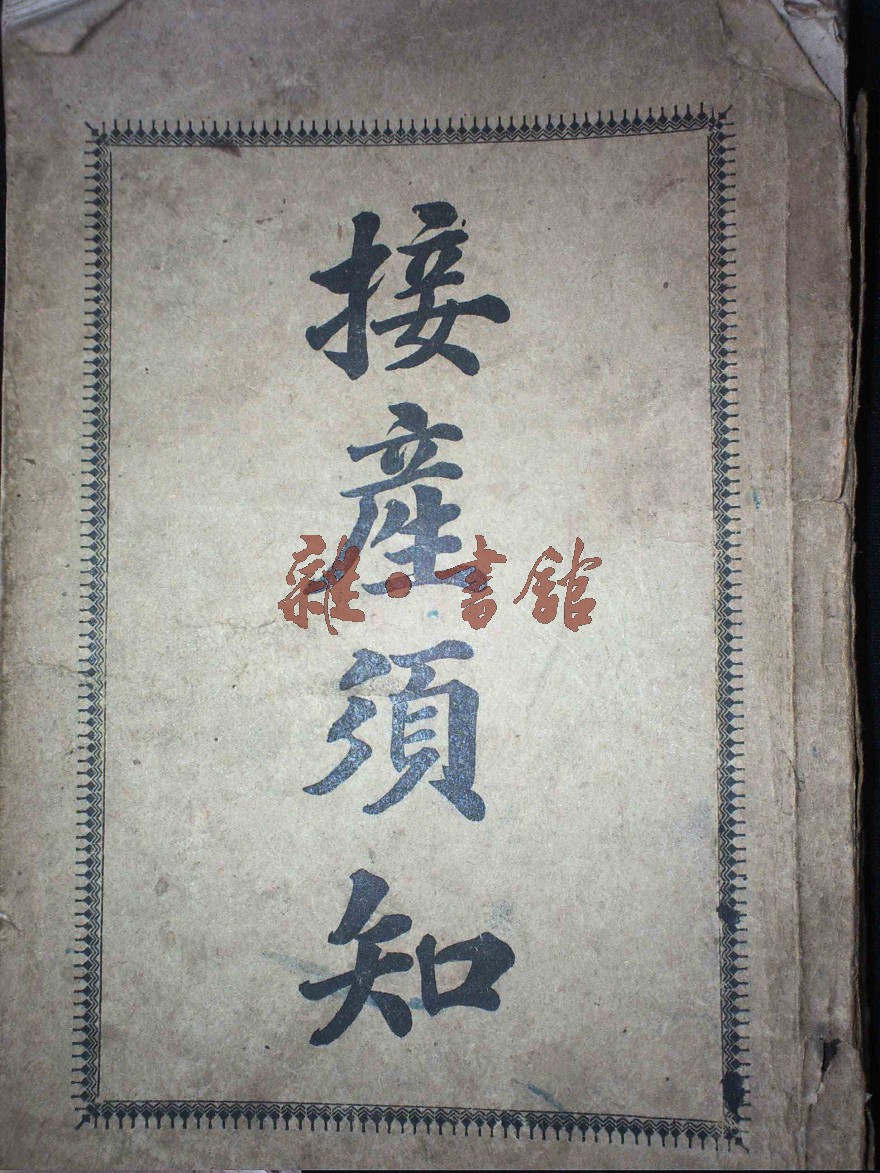 接產須知
雜·書館